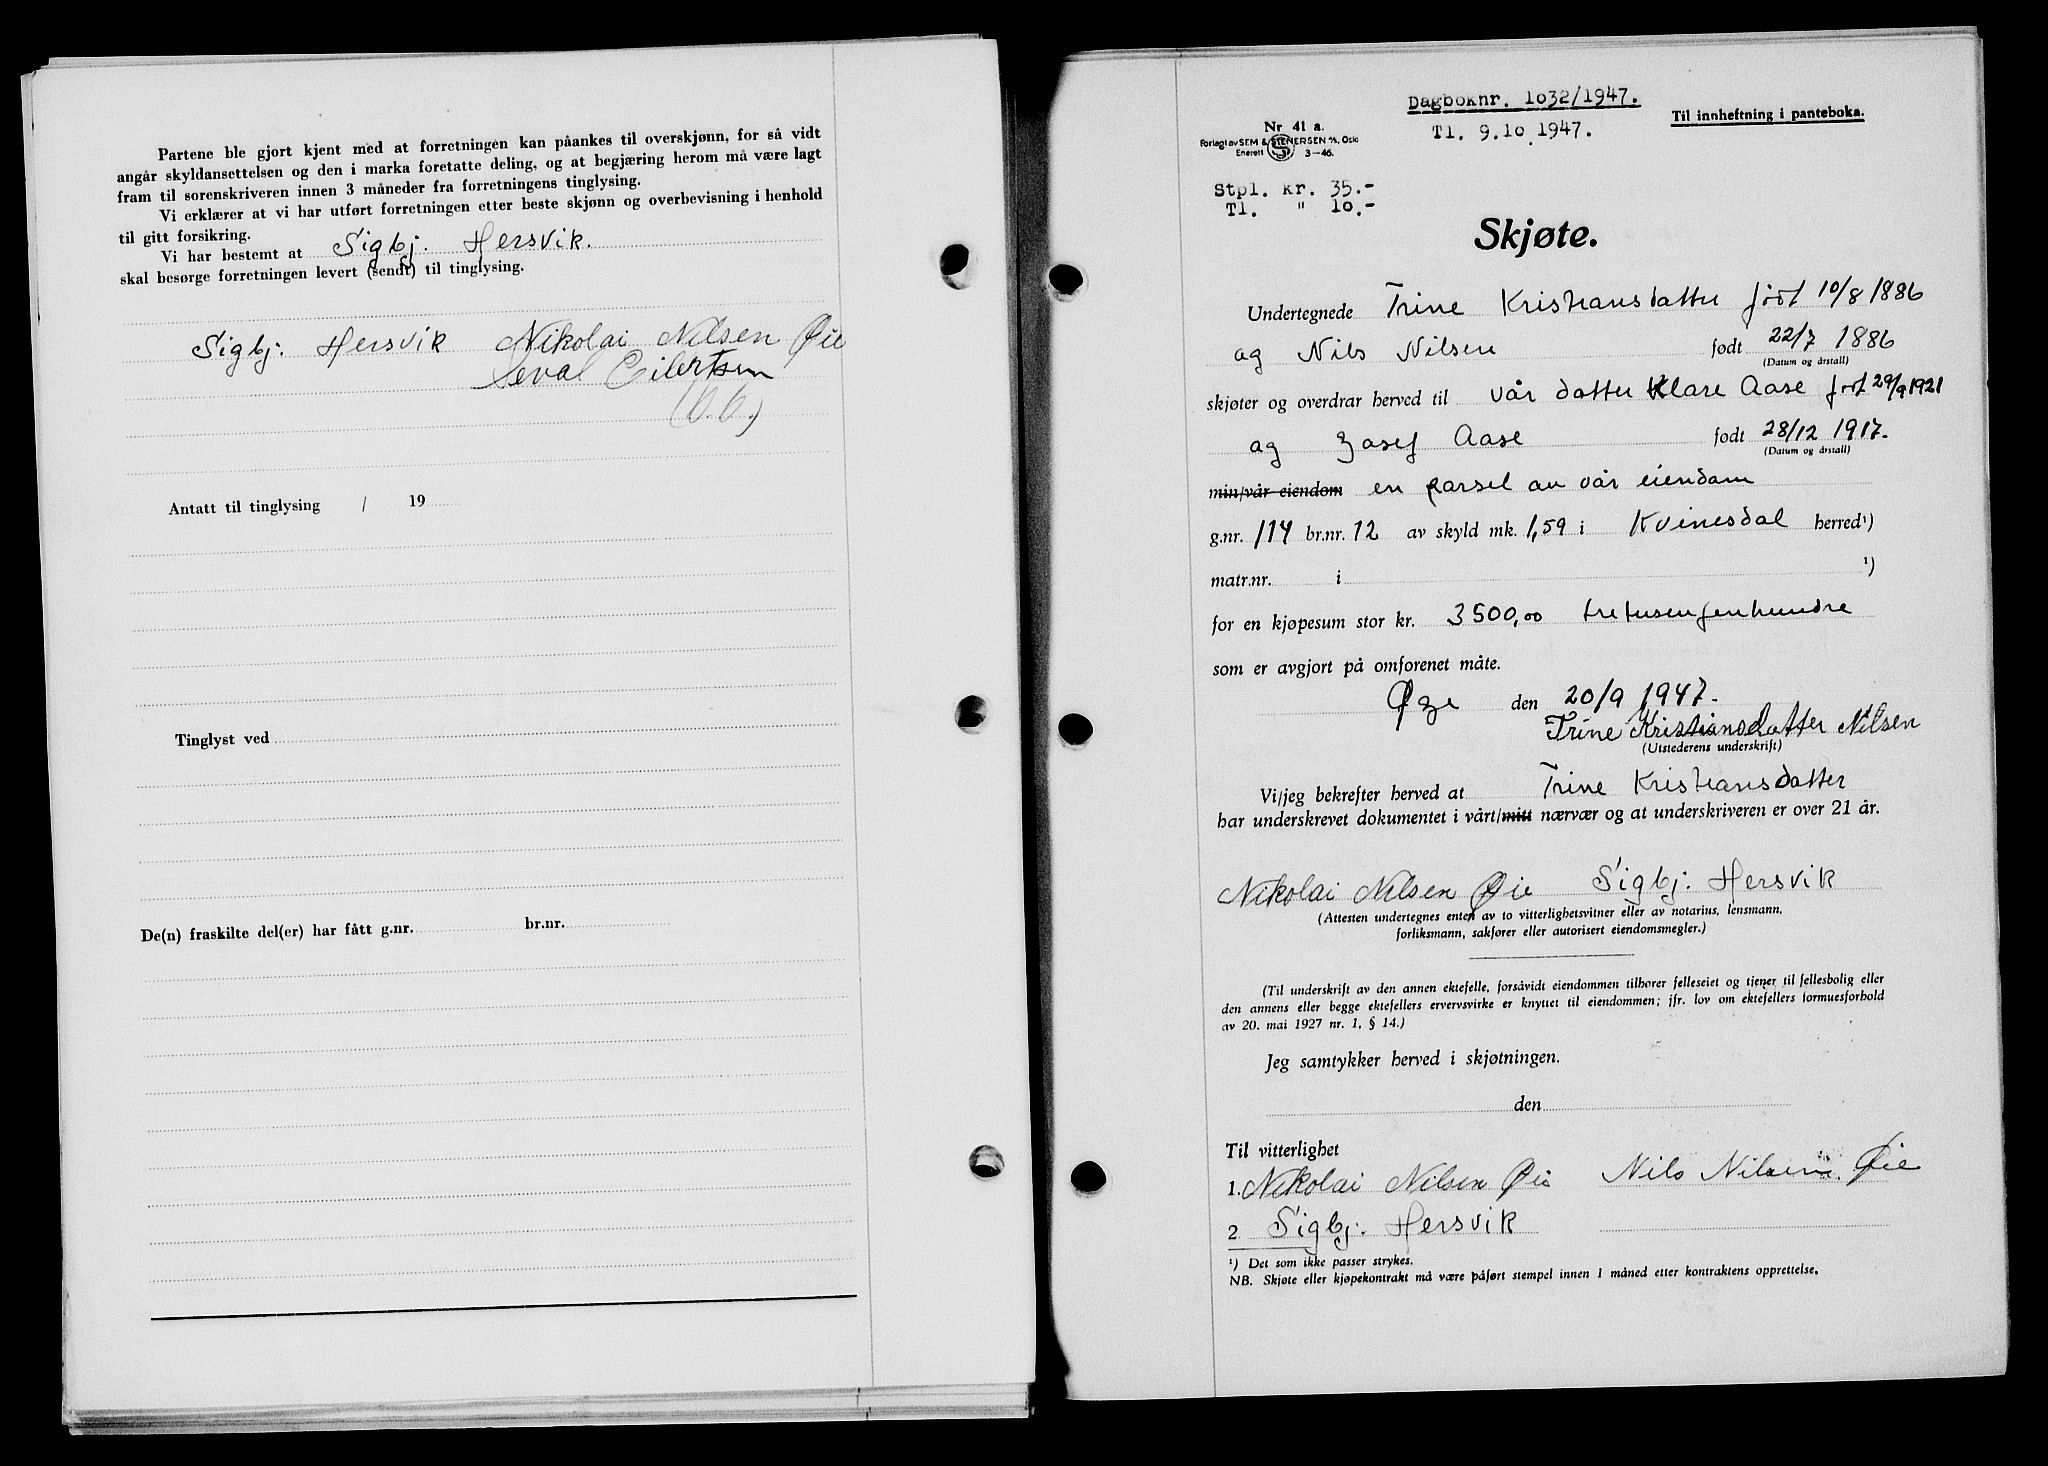 Partene ble gjort kjent med at forretningen kan påankes til overskjønn, for så vidt
angår skyldansettelsen og den i marka foretatte deling, og at begjæring herom må være lagt
fram til sorenskriveren innen 3 måneder fra forretningens tinglysing.
Vi erklærer at vi har utført forretningen etter beste skjønn og overbevisning i henhold
til gitt forsikring.
Vi har bestemt at Sigbj. Hersvik.
skal besørge forretningen levert (sendt) til tinglysing.
Sigbj. Hersvik Nikolai Nilsen Øie
Seval Eilertsen
Antatt til tinglysing / 19
Tinglyst ved
De(n) fraskilte del(er) har fått g.nr. br.nr.
Dagboknr. 1032/1947.
Tl. 9.10 1947.
Til innheftning i panteboka.
Nr 41 a.
Forlagt av SEM & STENERSEN A/S, Oslo
Enerett 3-46.
Stpl. kr. 35.-
Tl. " 10.-
Skjøte.
Undertegnede Trine Kristiansdatter født 10/8 1886
og Nils Nilsen født 22/7 1886
(Datum og årstall)
skjøter og overdrar herved til vår datter Klare Aase født 29/9 1921
og Josef Aase født 28/12 1917.
(Datum og årstall)
min/vår eiendom en parsel av vår eiendom
g.nr. 114 br.nr. 12 av skyld mk. 1,59 i Kvinesdal herred¹)
matr.nr. i ¹)
for en kjøpesum stor kr. 3500,00 tretusenfemhundre
som er avgjort på omforenet måte.
Øye den 20/9 1947.
Trine Kristiansdatter Nilsen
(Utstederens underskrift)
Vi/jeg bekrefter herved at Trine Kristiansdatter
har underskrevet dokumentet i vårt/mitt nærvær og at underskriveren er over 21 år.
Nikolai Nilsen Øie Sigbj. Hersvik
(Attesten undertegnes enten av to vitterlighetsvitner eller av notarius, lensmann,
forliksmann, sakfører eller autorisert eiendomsmegler.)
(Til underskrift av den annen ektefelle, forsåvidt eiendommen tilhører felleseiet og tjener til fellesbolig eller
den annens eller begge ektefellers ervervsvirke er knyttet til eiendommen; jfr. lov om ektefellers formuesforhold
av 20. mai 1927 nr. 1, § 14.)
Jeg samtykker herved i skjøtningen.
den
Til vitterlighet
1. Nikolai Nilsen Øie Nils Nilsen Øie
2 Sigbj. Hersvik
¹) Det som ikke passer strykes.
NB. Skjøte eller kjøpekontrakt må være påført stempel innen 1 måned etter kontraktens opprettelse.